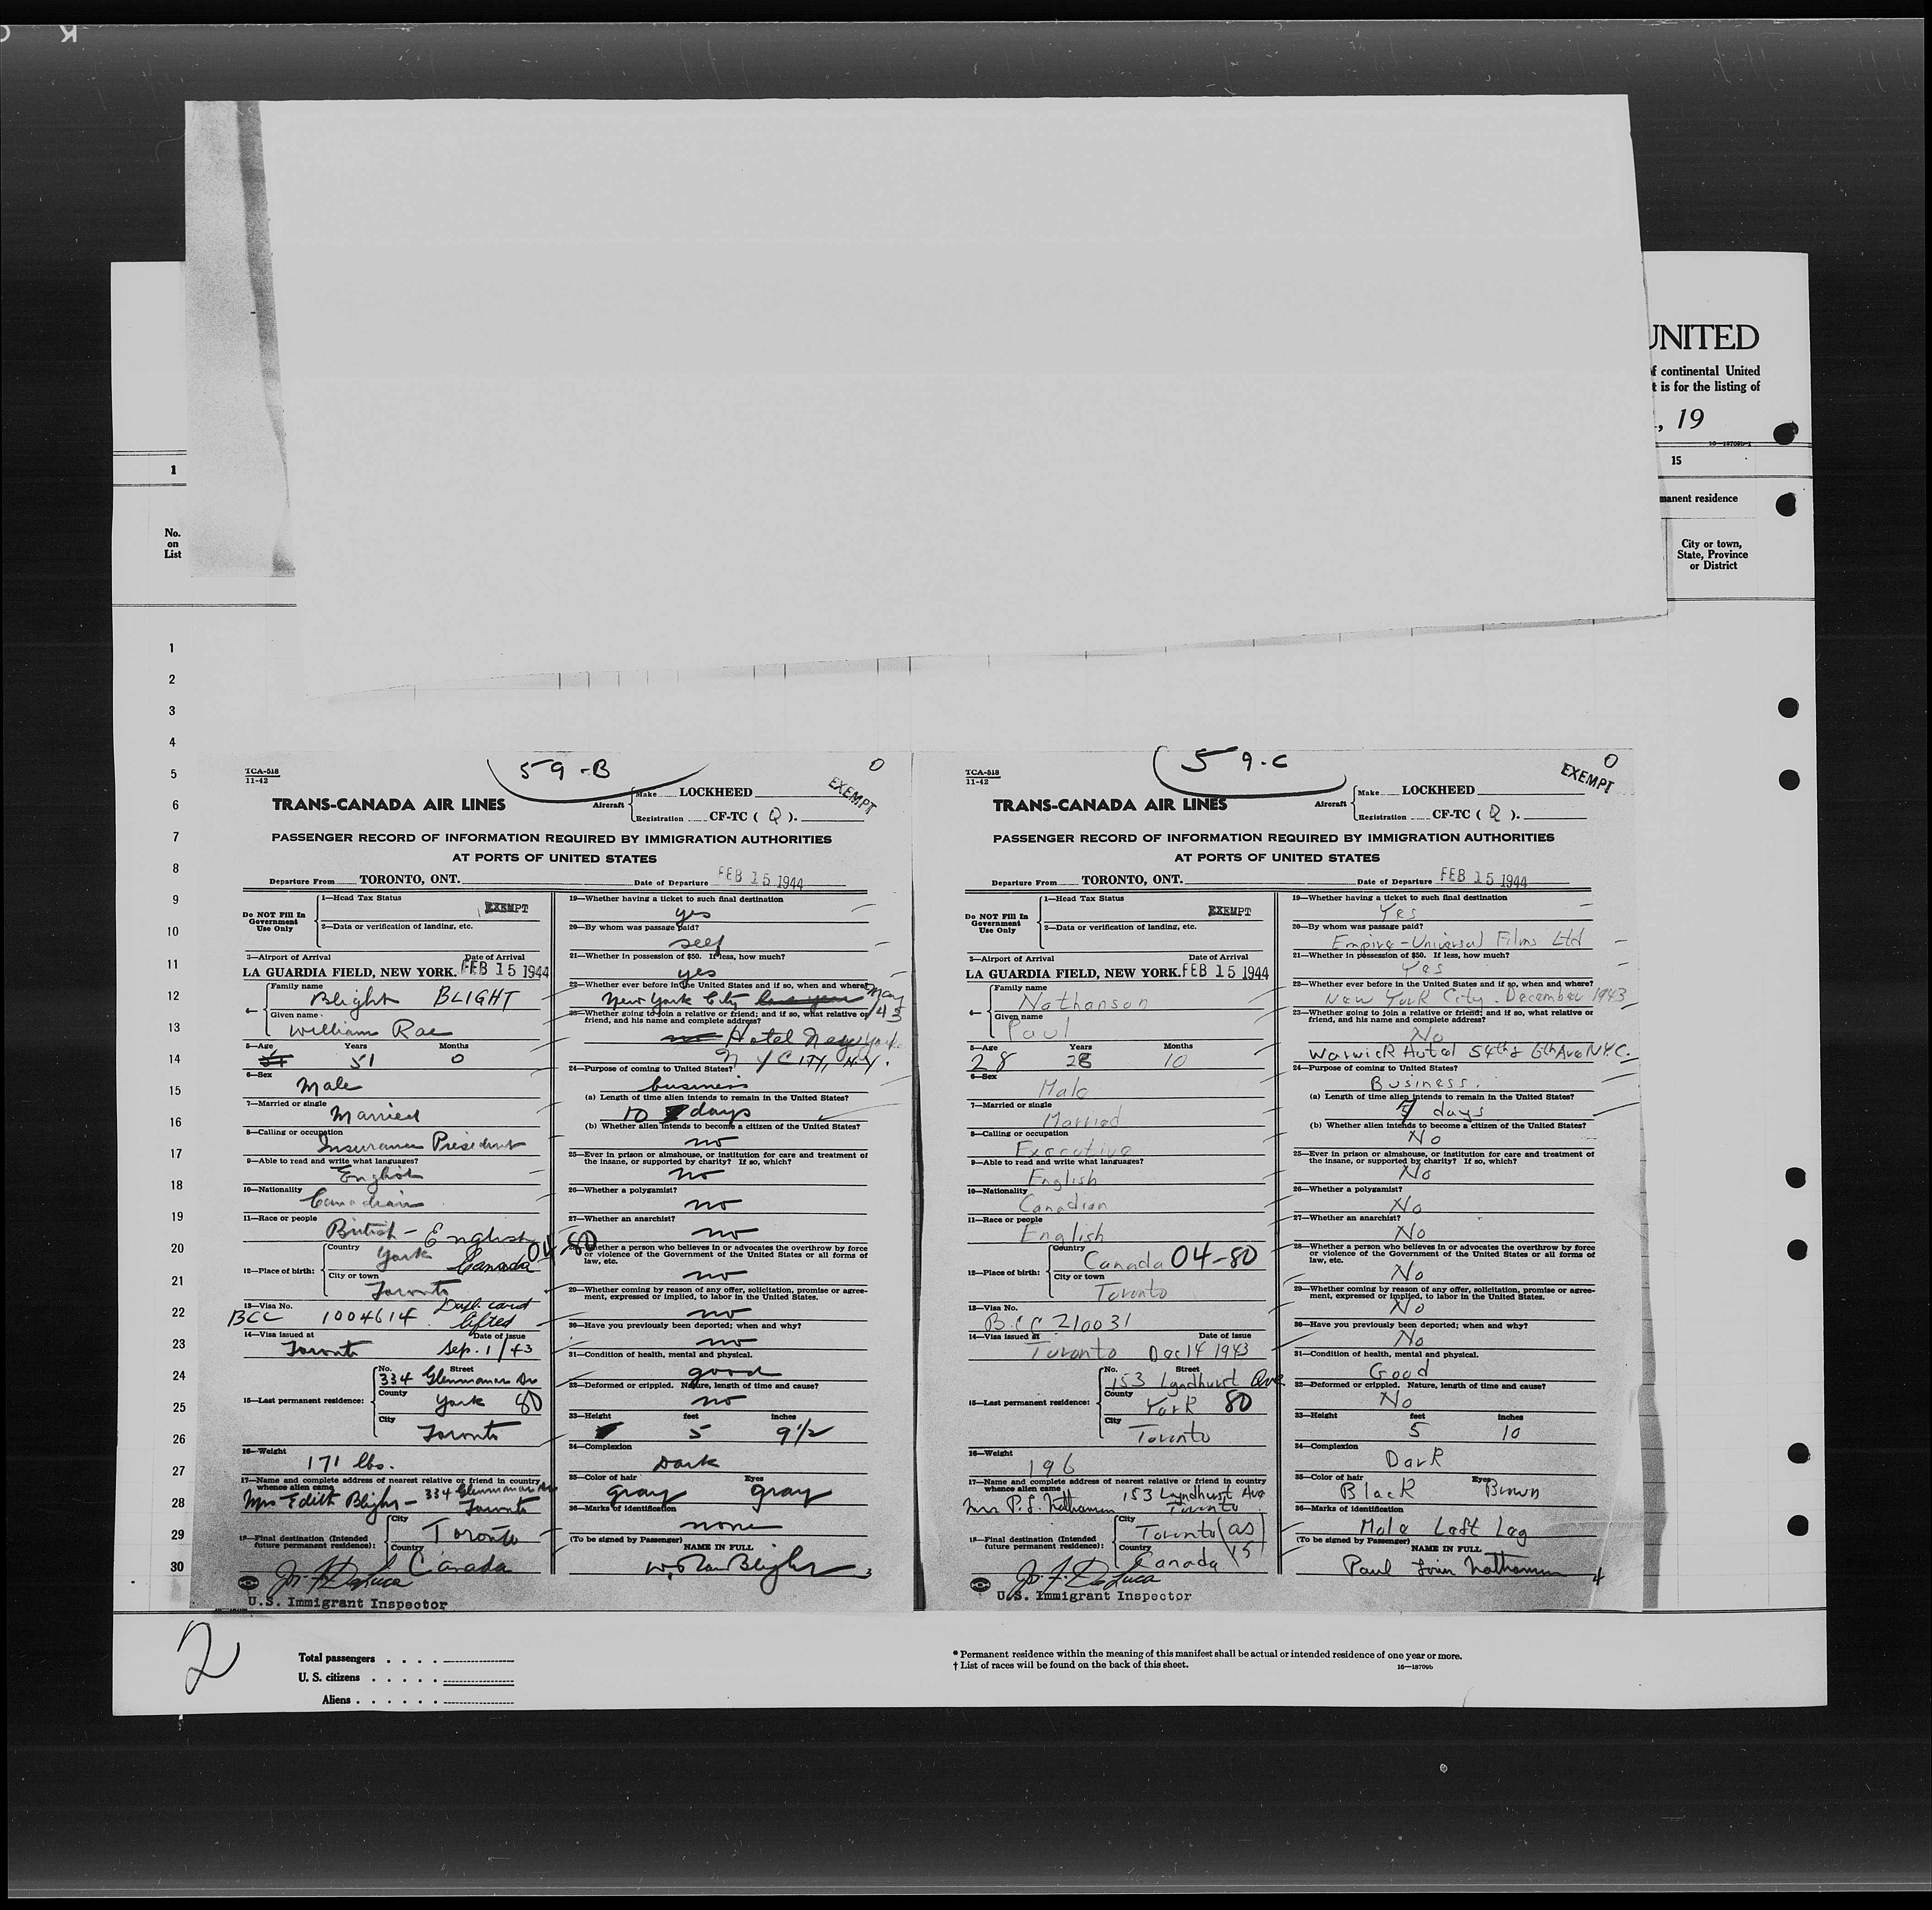 UNITED
of continental United
t is for the listing of
., 19
16—18709b-1
1
15
manent residence
No.
on
List
City or town,
State, Province
or District
1
2
3
4
5
6
7
8
9
10
11
12
13
14
15
16
17
18
19
20
21
22
23
24
25
26
27
28
29
30
59-B
0
TCA-518
11-42
EXEMPT
TRANS-CANADA AIR LINES
Aircraft
Make LOCKHEED
Registration CF-TC ( Q ).
PASSENGER RECORD OF INFORMATION REQUIRED BY IMMIGRATION AUTHORITIES
AT PORTS OF UNITED STATES
Departure From TORONTO, ONT. Date of Departure FEB 15 1944
Do NOT Fill In
Government
Use Only
1—Head Tax Status
EXEMPT
2—Data or verification of landing, etc.
3—Airport of Arrival Date of Arrival
LA GUARDIA FIELD, NEW YORK. FEB 15 1944
4— Family name
Blight BLIGHT
Given name
William Rae
5—Age Years Months
51 0
6—Sex
Male
7—Married or single
Married
8—Calling or occupation
Insurance President
9—Able to read and write what languages?
English
10—Nationality
Canadian
11—Race or people
British - English
12—Place of birth:
Country
York Canada 04-80
City or town
Toronto
13—Visa No.
BCC 1004614 Dupl. card
lifted
14—Visa issued at Date of issue
Toronto Sep. 1/43
15—Last permanent residence:
No. Street
334 Glenmanor Dr
County
York 80
City
Toronto
16—Weight
171 lbs.
17—Name and complete address of nearest relative or friend in country
whence alien came
Mrs Edith Blight - 334 Glenmanor Dr
Toronto
18—Final destination (Intended
future permanent residence):
City
Toronto
Country
Canada
Jos. F. DeLuca
U.S. Immigrant Inspector
19—Whether having a ticket to such final destination
yes
20—By whom was passage paid?
self
21—Whether in possession of $50. If less, how much?
yes
22—Whether ever before in the United States and if so, when and where?
New York City last year May/43
23—Whether going to join a relative or friend; and if so, what relative or
friend, and his name and complete address?
no Hotel New York
N Y CITY, N.Y.
24—Purpose of coming to United States?
business
(a) Length of time alien intends to remain in the United States?
10 days
(b) Whether alien intends to become a citizen of the United States?
no
25—Ever in prison or almshouse, or institution for care and treatment of
the insane, or supported by charity? If so, which?
no
26—Whether a polygamist?
no
27—Whether an anarchist?
no
28—Whether a person who believes in or advocates the overthrow by force
or violence of the Government of the United States or all forms of
law, etc.
no
29—Whether coming by reason of any offer, solicitation, promise or agree-
ment, expressed or implied, to labor in the United States.
no
30—Have you previously been deported; when and why?
no
31—Condition of health, mental and physical.
good
32—Deformed or crippled. Nature, length of time and cause?
no
33—Height feet inches
5 9½
34—Complexion
Dark
35—Color of hair Eyes
gray gray
36—Marks of identification
none
(To be signed by Passenger)
NAME IN FULL
W. Rae Blight
3
59-C
0
TCA-518
11-42
EXEMPT
TRANS-CANADA AIR LINES
Aircraft
Make LOCKHEED
Registration CF-TC ( Q ).
PASSENGER RECORD OF INFORMATION REQUIRED BY IMMIGRATION AUTHORITIES
AT PORTS OF UNITED STATES
Departure From TORONTO, ONT. Date of Departure FEB 15 1944
Do NOT Fill In
Government
Use Only
1—Head Tax Status
EXEMPT
2—Data or verification of landing, etc.
3—Airport of Arrival Date of Arrival
LA GUARDIA FIELD, NEW YORK. FEB 15 1944
4— Family name
Nathanson
Given name
Paul
5—Age Years Months
28 28 10
6—Sex
Male
7—Married or single
Married
8—Calling or occupation
Executive
9—Able to read and write what languages?
English
10—Nationality
Canadian
11—Race or people
English
12—Place of birth:
Country
Canada 04-80
City or town
Toronto
13—Visa No.
B.C.C 210031
14—Visa issued at Date of issue
Toronto Dec 14 1943
15—Last permanent residence:
No. Street
153 Lyndhurst Ave
County
York 80
City
Toronto
16—Weight
196
17—Name and complete address of nearest relative or friend in country
whence alien came
Mrs P.L. Nathanson 153 Lyndhurst Ave
Toronto
18—Final destination (Intended
future permanent residence):
City
Toronto (as
Country
Canada 15)
Jos. F. DeLuca
U.S. Immigrant Inspector
19—Whether having a ticket to such final destination
Yes
20—By whom was passage paid?
Empire-Universal Films Ltd
21—Whether in possession of $50. If less, how much?
Yes
22—Whether ever before in the United States and if so, when and where?
New York City. December 1943
23—Whether going to join a relative or friend; and if so, what relative or
friend, and his name and complete address?
No
Warwick Hotel 54th & 6th Ave N.Y.C.
24—Purpose of coming to United States?
Business.
(a) Length of time alien intends to remain in the United States?
days
(b) Whether alien intends to become a citizen of the United States?
No
25—Ever in prison or almshouse, or institution for care and treatment of
the insane, or supported by charity? If so, which?
No
26—Whether a polygamist?
No
27—Whether an anarchist?
No
28—Whether a person who believes in or advocates the overthrow by force
or violence of the Government of the United States or all forms of
law, etc.
No
29—Whether coming by reason of any offer, solicitation, promise or agree-
ment, expressed or implied, to labor in the United States.
No
30—Have you previously been deported; when and why?
No
31—Condition of health, mental and physical.
Good
32—Deformed or crippled. Nature, length of time and cause?
No
33—Height feet inches
5 10
34—Complexion
Dark
35—Color of hair Eyes
Black Brown
36—Marks of identification
Mole Left Leg
(To be signed by Passenger)
NAME IN FULL
Paul Louis Nathanson
4
2
Total passengers . . . .
U. S. citizens . . . . .
Aliens . . . . . .
* Permanent residence within the meaning of this manifest shall be actual or intended residence of one year or more.
† List of races will be found on the back of this sheet.
16—18709b